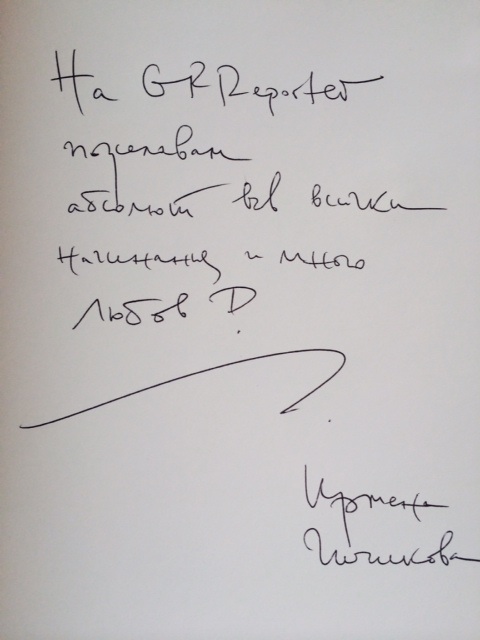 На GRReporter
пожелавам
абсолют във всички
начинания и много
Любов
Ирмена
Чичикова